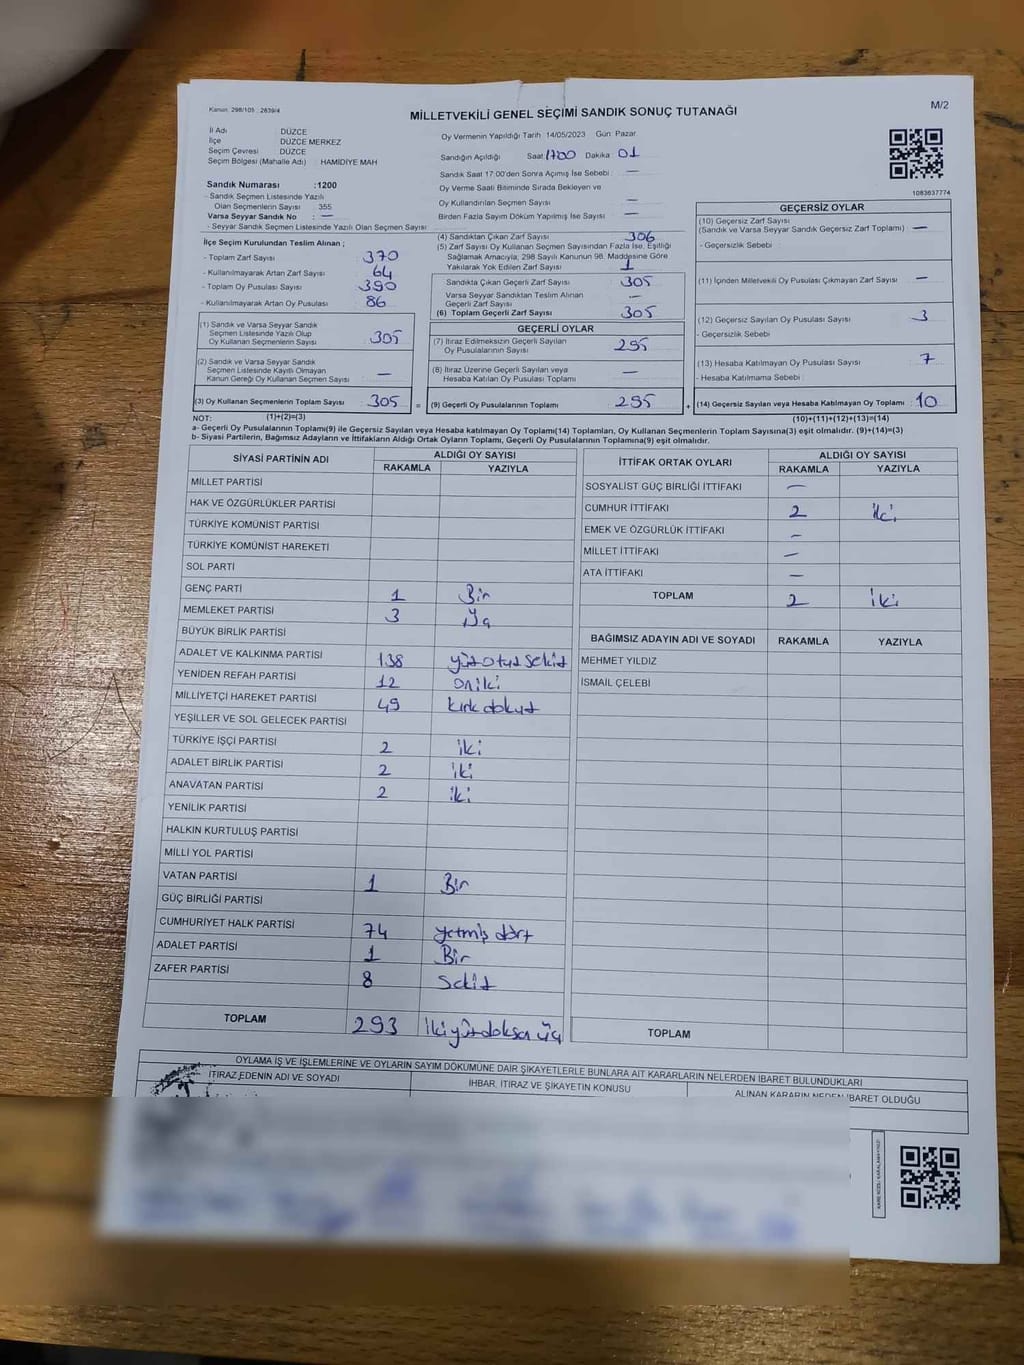 Kanun: 298/105 : 2839/4
MİLLETVEKİLİ GENEL SEÇİMİ SANDIK SONUÇ TUTANAĞI
M/2
İl Adı : DÜZCE
İlçe : DÜZCE MERKEZ
Seçim Çevresi : DÜZCE
Seçim Bölgesi (Mahalle Adı) : HAMİDİYE MAH
Oy Vermenin Yapıldığı Tarih 14/05/2023 Gün: Pazar
Sandığın Açıldığı Saat: 1700 Dakika: 01
Sandık Saat 17:00'den Sonra Açımış İse Sebebi : —
Oy Verme Saati Bitiminde Sırada Bekleyen ve
Oy Kullandırılan Seçmen Sayısı : —
Birden Fazla Sayım Döküm Yapılmış İse Sayısı : —
1083637774
Sandık Numarası :1200
- Sandık Seçmen Listesinde Yazılı
Olan Seçmenlerin Sayısı : 355
Varsa Seyyar Sandık No : —
- Seyyar Sandık Seçmen Listesinde Yazılı Olan Seçmen Sayısı
İlçe Seçim Kurulundan Teslim Alınan ;
- Toplam Zarf Sayısı : 370
- Kullanılmayarak Artan Zarf Sayısı : 64
- Toplam Oy Pusulası Sayısı : 390
- Kullanılmayarak Artan Oy Pusulası : 86
(1) Sandık ve Varsa Seyyar Sandık
Seçmen Listesinde Yazılı Olup
Oy Kullanan Seçmenlerin Sayısı : 305
(2) Sandık ve Varsa Seyyar Sandık
Seçmen Listesinde Kayıtlı Olmayan
Kanun Gereği Oy Kullanan Seçmen Sayısı : —
(3) Oy Kullanan Seçmenlerin Toplam Sayısı : 305 =
(1)+(2)=(3)
(4) Sandıktan Çıkan Zarf Sayısı : 306
(5) Zarf Sayısı Oy Kullanan Seçmen Sayısından Fazla İse, Eşitliği
Sağlamak Amacıyla, 298 Sayılı Kanunun 98. Maddesine Göre
Yakılarak Yok Edilen Zarf Sayısı : 1
Sandıkta Çıkan Geçerli Zarf Sayısı : 305
Varsa Seyyar Sandıktan Teslim Alınan
Geçerli Zarf Sayısı : —
(6) Toplam Geçerli Zarf Sayısı : 305
GEÇERLİ OYLAR
(7) İtiraz Edilmeksizin Geçerli Sayılan
Oy Pusulalarının Sayısı : 295
(8) İtiraz Üzerine Geçerli Sayılan veya
Hesaba Katılan Oy Pusulası Toplamı : —
(9) Geçerli Oy Pusulalarının Toplamı : 295 +
GEÇERSİZ OYLAR
(10) Geçersiz Zarf Sayısı
(Sandık ve Varsa Seyyar Sandık Geçersiz Zarf Toplamı) : —
- Geçersizlik Sebebi :
(11) İçinden Milletvekili Oy Pusulası Çıkmayan Zarf Sayısı : —
(12) Geçersiz Sayılan Oy Pusulası Sayısı : 3
- Geçersizlik Sebebi
(13) Hesaba Katılmayan Oy Pusulası Sayısı : 7
- Hesaba Katılmama Sebebi :
(14) Geçersiz Sayılan veya Hesaba Katılmayan Oy Toplamı : 10
(10)+(11)+(12)+(13)=(14)
NOT:
a- Geçerli Oy Pusulalarının Toplamı(9) ile Geçersiz Sayılan veya Hesaba katılmayan Oy Toplamı(14) Toplamları, Oy Kullanan Seçmenlerin Toplam Sayısına(3) eşit olmalıdır. (9)+(14)=(3)
b- Siyasi Partilerin, Bağımsız Adayların ve İttifakların Aldığı Ortak Oyların Toplamı, Geçerli Oy Pusulalarının Toplamına(9) eşit olmalıdır.
SİYASİ PARTİNİN ADI ALDIĞI OY SAYISI
RAKAMLA YAZIYLA
MİLLET PARTİSİ
HAK VE ÖZGÜRLÜKLER PARTİSİ
TÜRKİYE KOMÜNİST PARTİSİ
TÜRKİYE KOMÜNİST HAREKETİ
SOL PARTİ
GENÇ PARTİ 1 Bir
MEMLEKET PARTİSİ 3
BÜYÜK BİRLİK PARTİSİ
ADALET VE KALKINMA PARTİSİ 138 yüz otuz sekiz
YENİDEN REFAH PARTİSİ 12 on iki
MİLLİYETÇİ HAREKET PARTİSİ 49 kırk dokuz
YEŞİLLER VE SOL GELECEK PARTİSİ
TÜRKİYE İŞÇİ PARTİSİ 2 iki
ADALET BİRLİK PARTİSİ 2 iki
ANAVATAN PARTİSİ 2 iki
YENİLİK PARTİSİ
HALKIN KURTULUŞ PARTİSİ
MİLLİ YOL PARTİSİ
VATAN PARTİSİ 1 Bir
GÜÇ BİRLİĞİ PARTİSİ
CUMHURİYET HALK PARTİSİ 74 yetmiş dört
ADALET PARTİSİ 1 Bir
ZAFER PARTİSİ 8 Sekiz
TOPLAM 293 İki yüz doksan üç
İTTİFAK ORTAK OYLARI ALDIĞI OY SAYISI
RAKAMLA YAZIYLA
SOSYALİST GÜÇ BİRLİĞİ İTTİFAKI —
CUMHUR İTTİFAKI 2 iki
EMEK VE ÖZGÜRLÜK İTTİFAKI —
MİLLET İTTİFAKI —
ATA İTTİFAKI —
TOPLAM 2 iki
BAĞIMSIZ ADAYIN ADI VE SOYADI RAKAMLA YAZIYLA
MEHMET YILDIZ
İSMAİL ÇELEBİ
TOPLAM
OYLAMA İŞ VE İŞLEMLERİNE VE OYLARIN SAYIM DÖKÜMÜNE DAİR ŞİKAYETLERLE BUNLARA AİT KARARLARIN NELERDEN İBARET BULUNDUKLARI
İTİRAZ EDENİN ADI VE SOYADI İHBAR, İTİRAZ VE ŞİKAYETİN KONUSU ALINAN KARARIN NEDEN İBARET OLDUĞU